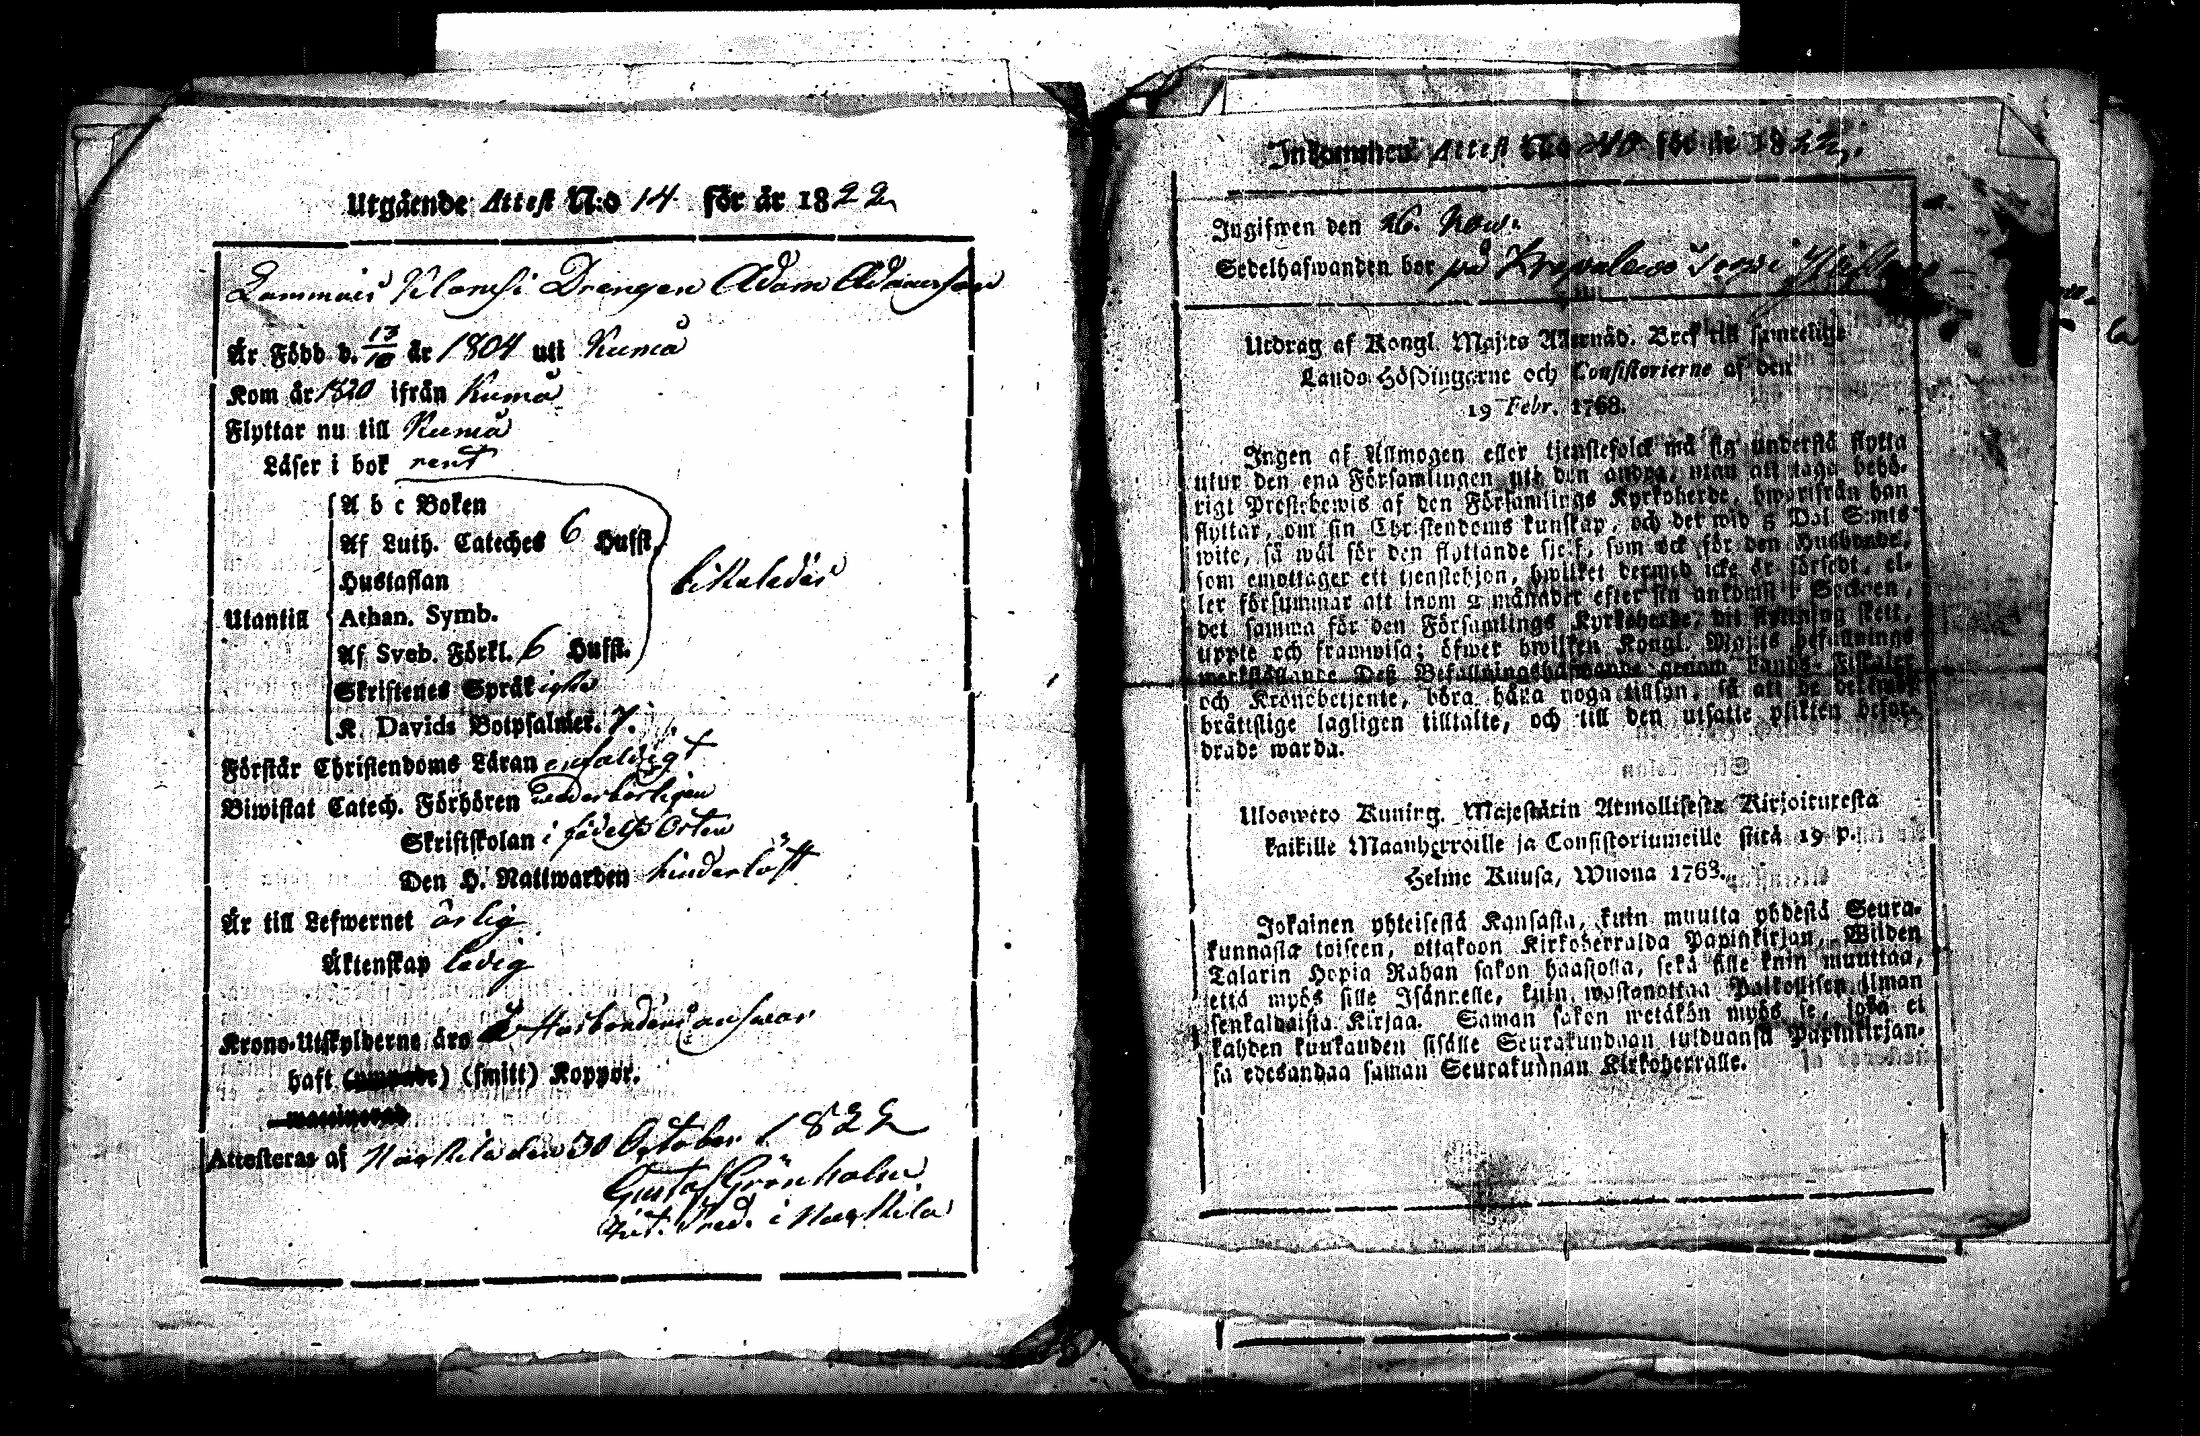 Utgående Attest N:o 14 för år 1822
Drengen Adam Adamsson
Är Född d. 13/10 år 1804 uti Kumo
Kom år 1820 ifrån Kumo
Flyttar nu till Kumo
Läser i bok rent
A b c Boken
Af Luth. Cateches 6 Hufst.
Hustaflan
likaledes
Utantill Athan. Symb.
Af Sveb. Förkl. 6 Hufst.
Skriftenes Språk
K. Davids Botpsalmer. 7.
Förstår Christendoms Läran enfaldigt
Biwistat Catech. Förhören wederbörligen
Skriftskolan i födelse Orten
Den H. Nattwarden hinderlöst
Är till Lefwernet ärlig
Äktenskap ledig
Krono-Utskylderne äro Husbondens answar
haft (smitt) Koppor.
Attesteras af Nakkila den 30 October 1822
Gustaf Grönholm
i Nakkila
Inkommen Attest N:o 40 för år 1822.
Ingifwen den 26. Now.
Sedelhafwanden bor på
Utdrag af Kongl. Maj:ts Allernåd. Bref till samtelige
Lands Höfdingarne och Consistorierne af den
19 Febr. 1768.
Ingen af Allmogen eller tjenstefolck må sig understå flytta
utur den ena Församlingen uti den andra, utan att taga behö-
rigt Prestebewis af den Församlings Kyrkoherde, hwarifrån han
flyttar, om sin Christendoms kunskap, och det wid 5 Dal. S:mts
wite, så wäl för den flyttande sjelf, som ock för den Husbonde,
som emottager ett tjenstehjon, hwilket dermed icke är försedt, el-
ler försummar att inom 2 månader efter sin ankomst i Socknen,
det samma för den Församlings Kyrkoherde, dit flyttning skett,
uppte och framwisa; öfwer hwilken Kongl. Maj:ts befallnings
werkställande Deß Befallningshafwande genom Lands-Fiskaler
och Kronobetjente, böra hafwa noga tillsyn, så att de dermot
bråttslige lagligen tilltalte, och till den utsatte plikten befor-
drade warda.
Uloswero Kuning. Majestätin Armollisesta Kirjoituresta
kaikille Maanherroille ja Consistoriumeille siitä 19 p.
Helme Kuusa, Wuona 1763.
Jokainen yhteisestä Kansasta, kuin muutta yhdestä Seura-
kunnasta toiseen, ottakoon Kirkoherralda Papinkirjan, Wiiden
Talarin Hopia Rahan sakon haastolla, sekä sille kuin muuttaa,
että myös sille Isännelle, kuin wastanottaa Palkollisen ilman
senkaldaista Kirjaa. Saman sakon wetäkön myös se, joka ei
kahden kuukauden sisälle Seurakundaan tulduansa Papinkirjan-
sa edesandaa saman Seurakunnan Kirkoherralle.